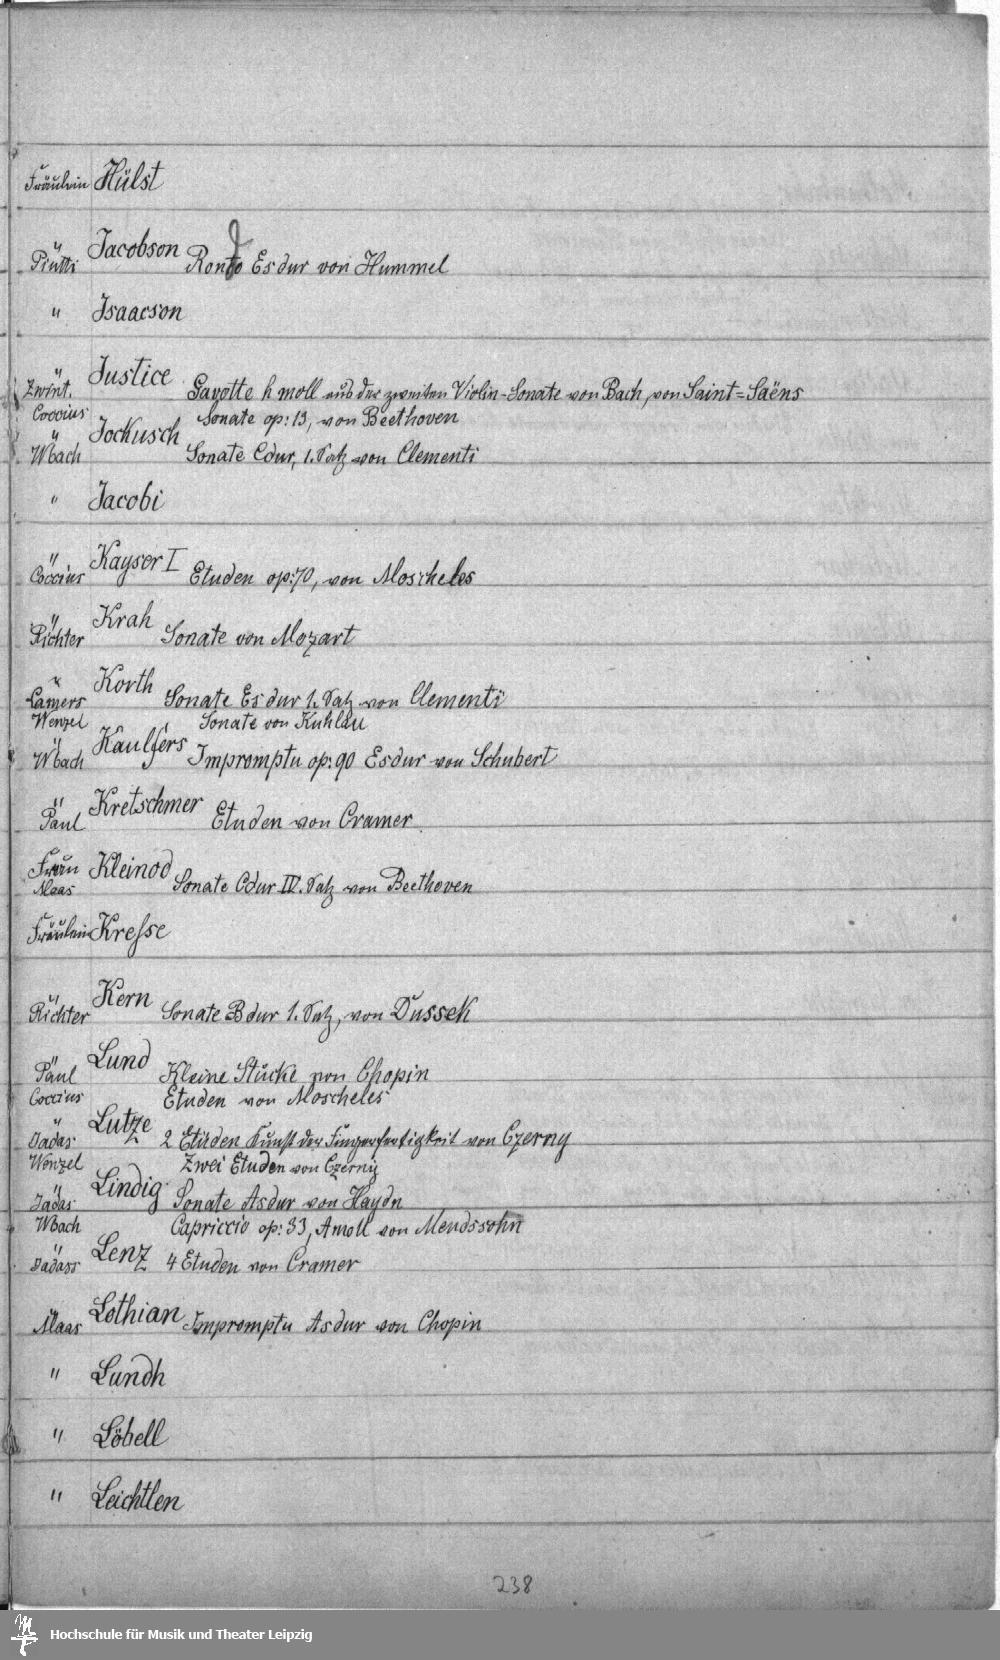 Fräulein Hülst
" Jacobson
Piutti Rondo Es dur von Hummel
" Isaacson
" Justice
Zwint. Gavotte h moll aus der zweiten Violin-Sonate von Bach, von Saint=Saëns
Coccius Sonate op: 13, von Beethoven
" Jockusch
Wbach Sonate Cdur, 1. Satz von Clementi
" Jacobi
" Kayser I
Coccius Etuden op: 70, von Moscheles
" Krah
Richter Sonate von Mozart
" Korth
Lamers Sonate Es dur 1. Satz von Clementi
Wenzel Sonate von Kuhlau
" Kaulfers
Wbach Impromptu op: 90 Esdur von Schubert
" Kretschmer
Paul Etuden von Cramer
Frau Kleinod
Maas Sonate Cdur IV. Satz von Beethoven
Fräulein Kresse
" Kern
Richter Sonate B dur 1. Satz, von Dussek
" Lund
Paul Kleine Stücke von Chopin
Coccius Etuden von Moscheles
" Lutze
Jadas. 2 Etüden Kunst der Fingerfertigkeit von Czerny
Wenzel Zwei Etuden von Czerny
" Lindig
Jadas. Sonate Asdur von Haydn
Wbach Capriccio op: 33, A moll von Mendssohn
" Lenz
Jadass 4 Etuden von Cramer
" Lothian
Maas Impromptu As dur von Chopin
" Lundh
" Löbell
" Leichtlen
238
Hochschule für Musik und Theater Leipzig